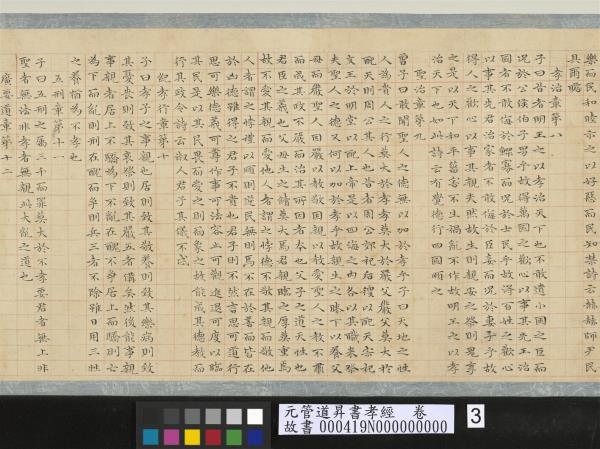 樂而民和睦示之以好惡而民知禁詩云赫赫師尹民
具爾瞻
孝治章第八
子曰昔者明王之以孝治天下也不敢遺小國之臣而
況於公侯伯子男乎故得萬國之歡心以事其先王治
國者不敢侮於鰥寡而況於士民乎故得百姓之歡心
以事其先君治家者不敢侮於臣妾而況於妻子乎故
得人之歡心以事其親夫然故生則親安之祭則鬼享
之是以天下和平菑害不生禍亂不作故明王之以孝
治天下也如此詩云有覺德行四國順之
聖治章第九
曾子曰敢問聖人之德無以加於孝乎子曰天地之性
人為貴人之行莫大於孝孝莫大於嚴父嚴父莫大於
配天則周公其人也昔者周公郊祀后稷以配天宗祀
文王於明堂以配上帝是以四海之內各以其職來祭
夫聖人之德又何以加於孝乎故親生之膝下以養父
母日嚴聖人因嚴以教敬因親以教愛聖人之教不肅
而成其政不嚴而治其所因者本也父子之道天性也
君臣之義也父母生之續莫大焉君親臨之厚莫重焉
故不愛其親而愛他人者謂之悖德不敬其親而敬他
人者謂之悖禮以順則逆民無則焉不在於善而皆在
於凶德雖得之君子不貴也君子則不然言思可道行
思可樂德義可尊作事可法容止可觀進退可度以臨
其民是以其民畏而愛之則而象之故能成其德教而
行其政令詩云淑人君子其儀不忒
紀孝行章第十
子曰孝子之事親也居則致其敬養則致其樂病則致
其憂喪則致其哀祭則致其嚴五者備矣然後能事親
事親者居上不驕為下不亂在醜不爭居上而驕則亡
為下而亂則刑在醜而爭則兵三者不除雖日用三牲
之養猶為不孝也
五刑章第十一
子曰五刑之屬三千而罪莫大於不孝要君者無上非
聖者無法非孝者無親此大亂之道也
廣要道章第十二
元管道昇書孝經 卷
故書 000419N000000000
3